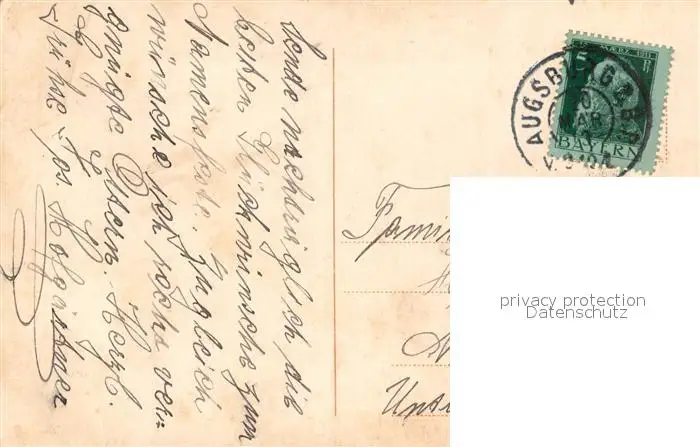 Sende nachträglich die
besten Glückwünsche zum
Namensfeste. Zugleich
wünsche ich recht ver=
gnügte Ostern. Herzl.
Grüße Jos.
Famil
Unt
12. MÄRZ 1911
5
BAYERN
AUGSBURG
MAR
privacy protection
Datenschutz